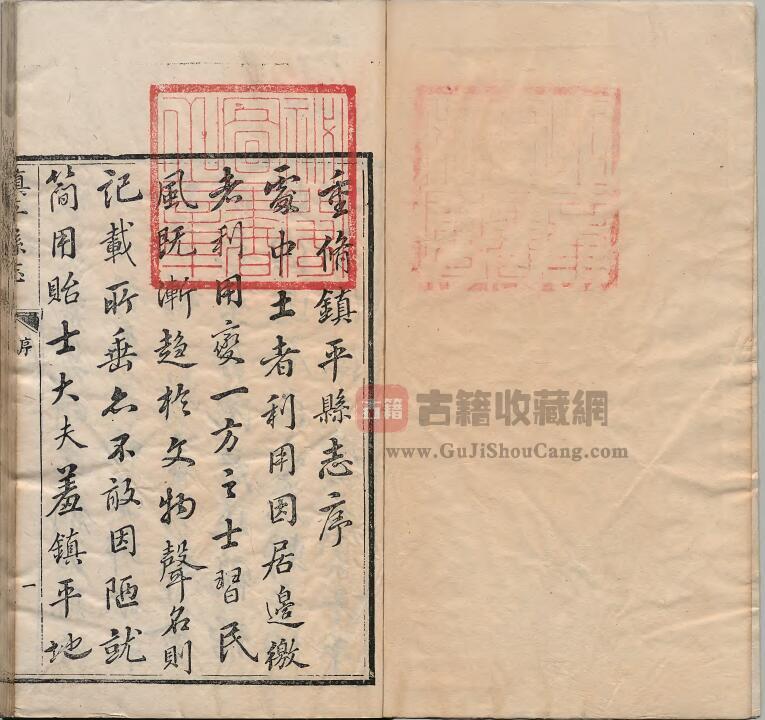 重脩鎮平縣志序
處中土者利用因居邊徼
者利用變一方之士習民
風既漸趨於文物聲名則
記載所垂亦不敢因陋就
簡用貽士大夫羞鎮平地
鎮平縣志
序
一
古籍
古籍收藏網
www.GuJiShouCang.com